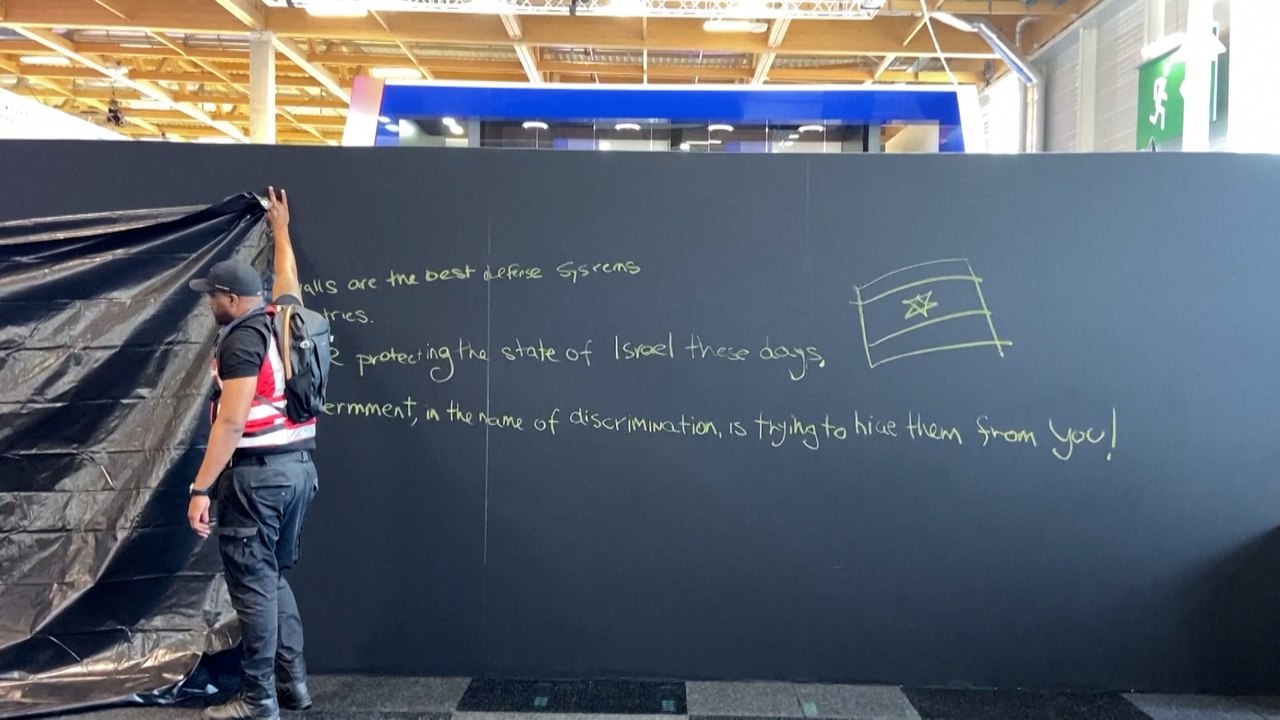 alls are the best defense Systems
tries.
protecting the state of Israel these days,
ernment, in the name of discrimination, is trying to hide them from you!